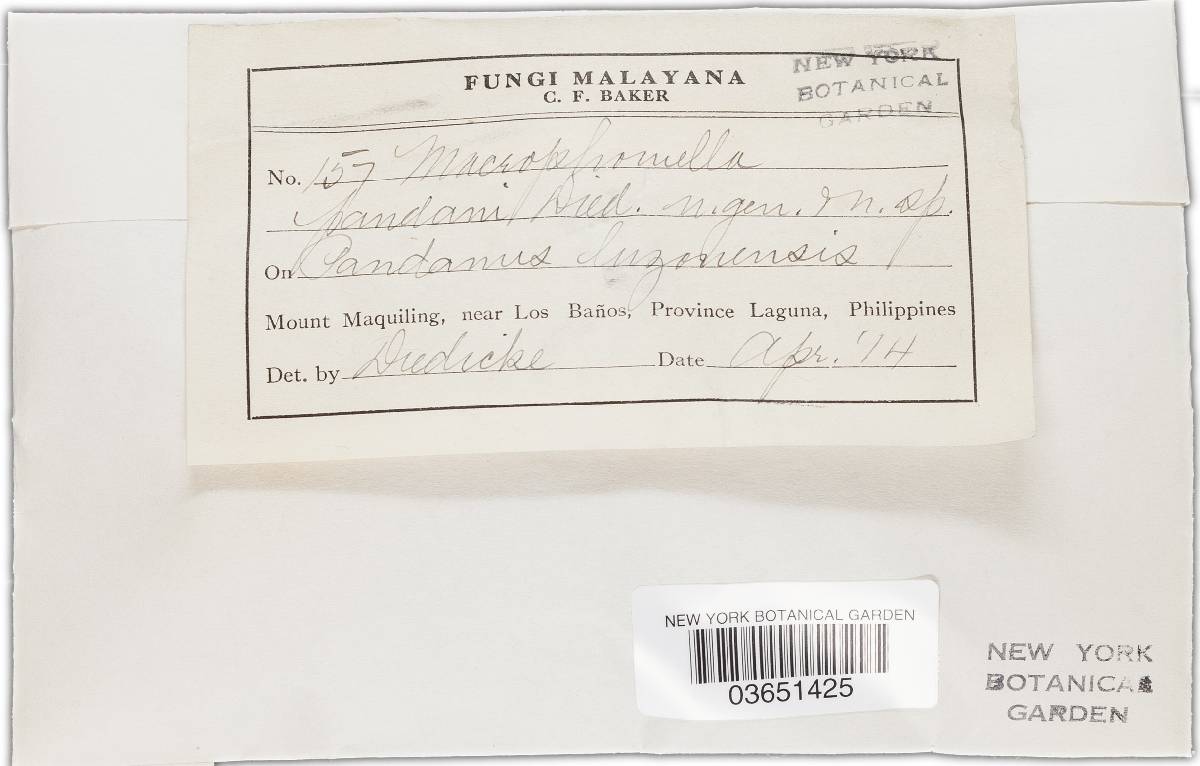 FUNGI MALAYANA
C. F. BAKER
NEW YORK
BOTANICAL
GARDEN
No. 157 Macrophomella
Pandani Died. n. gen. & n. sp.
On Pandanus luzonensis
Mount Maquiling, near Los Baños, Province Laguna, Philippines
Det. by Diedicke Date Apr. '14
NEW YORK BOTANICAL GARDEN
03651425
NEW YORK
BOTANICAL
GARDEN